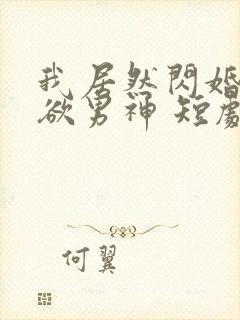 我居然閃婚
欲男神 短劇
何翼